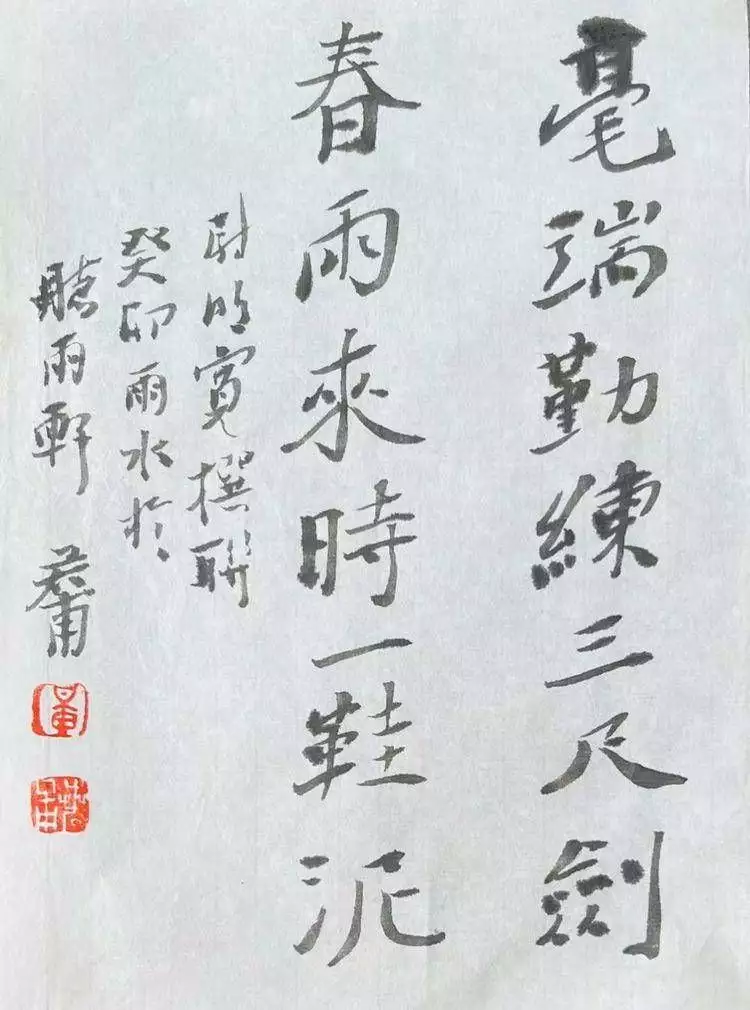 毫端勤練三尺劍
春雨來時一鞋泥
尉明寬撰聯
癸卯雨水於
聽雨軒 墓甫
董